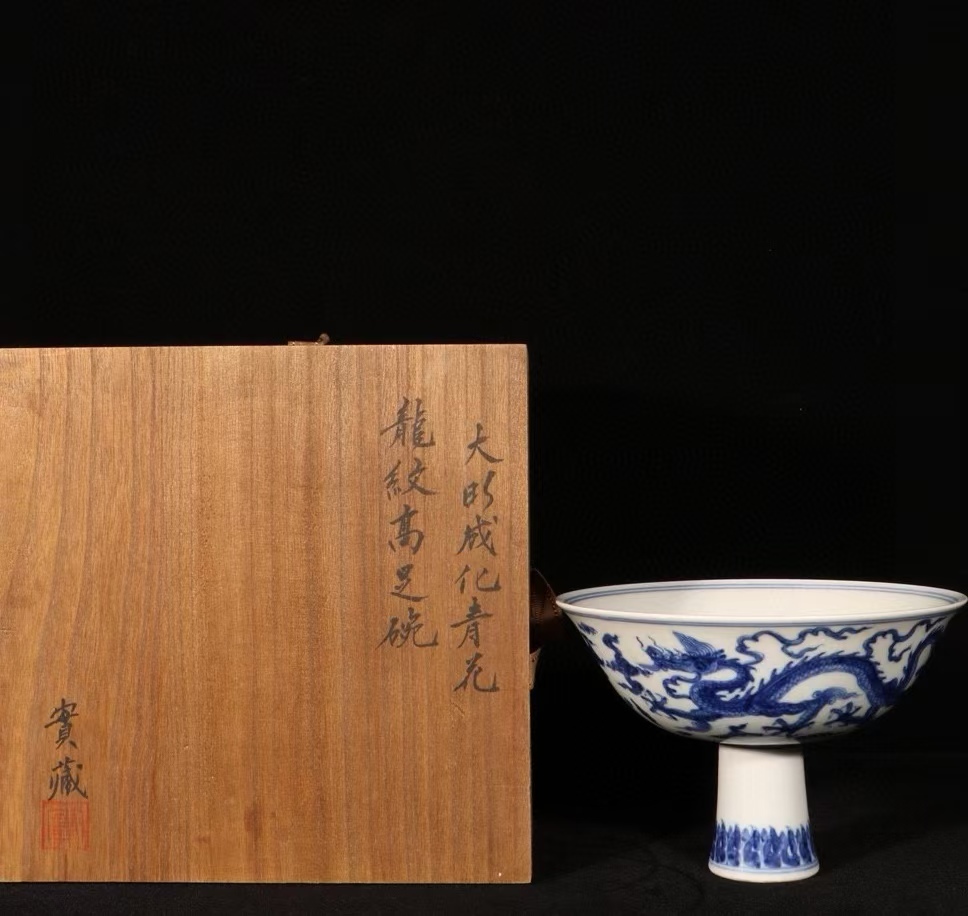 大明成化青花
龍紋高足碗
實藏